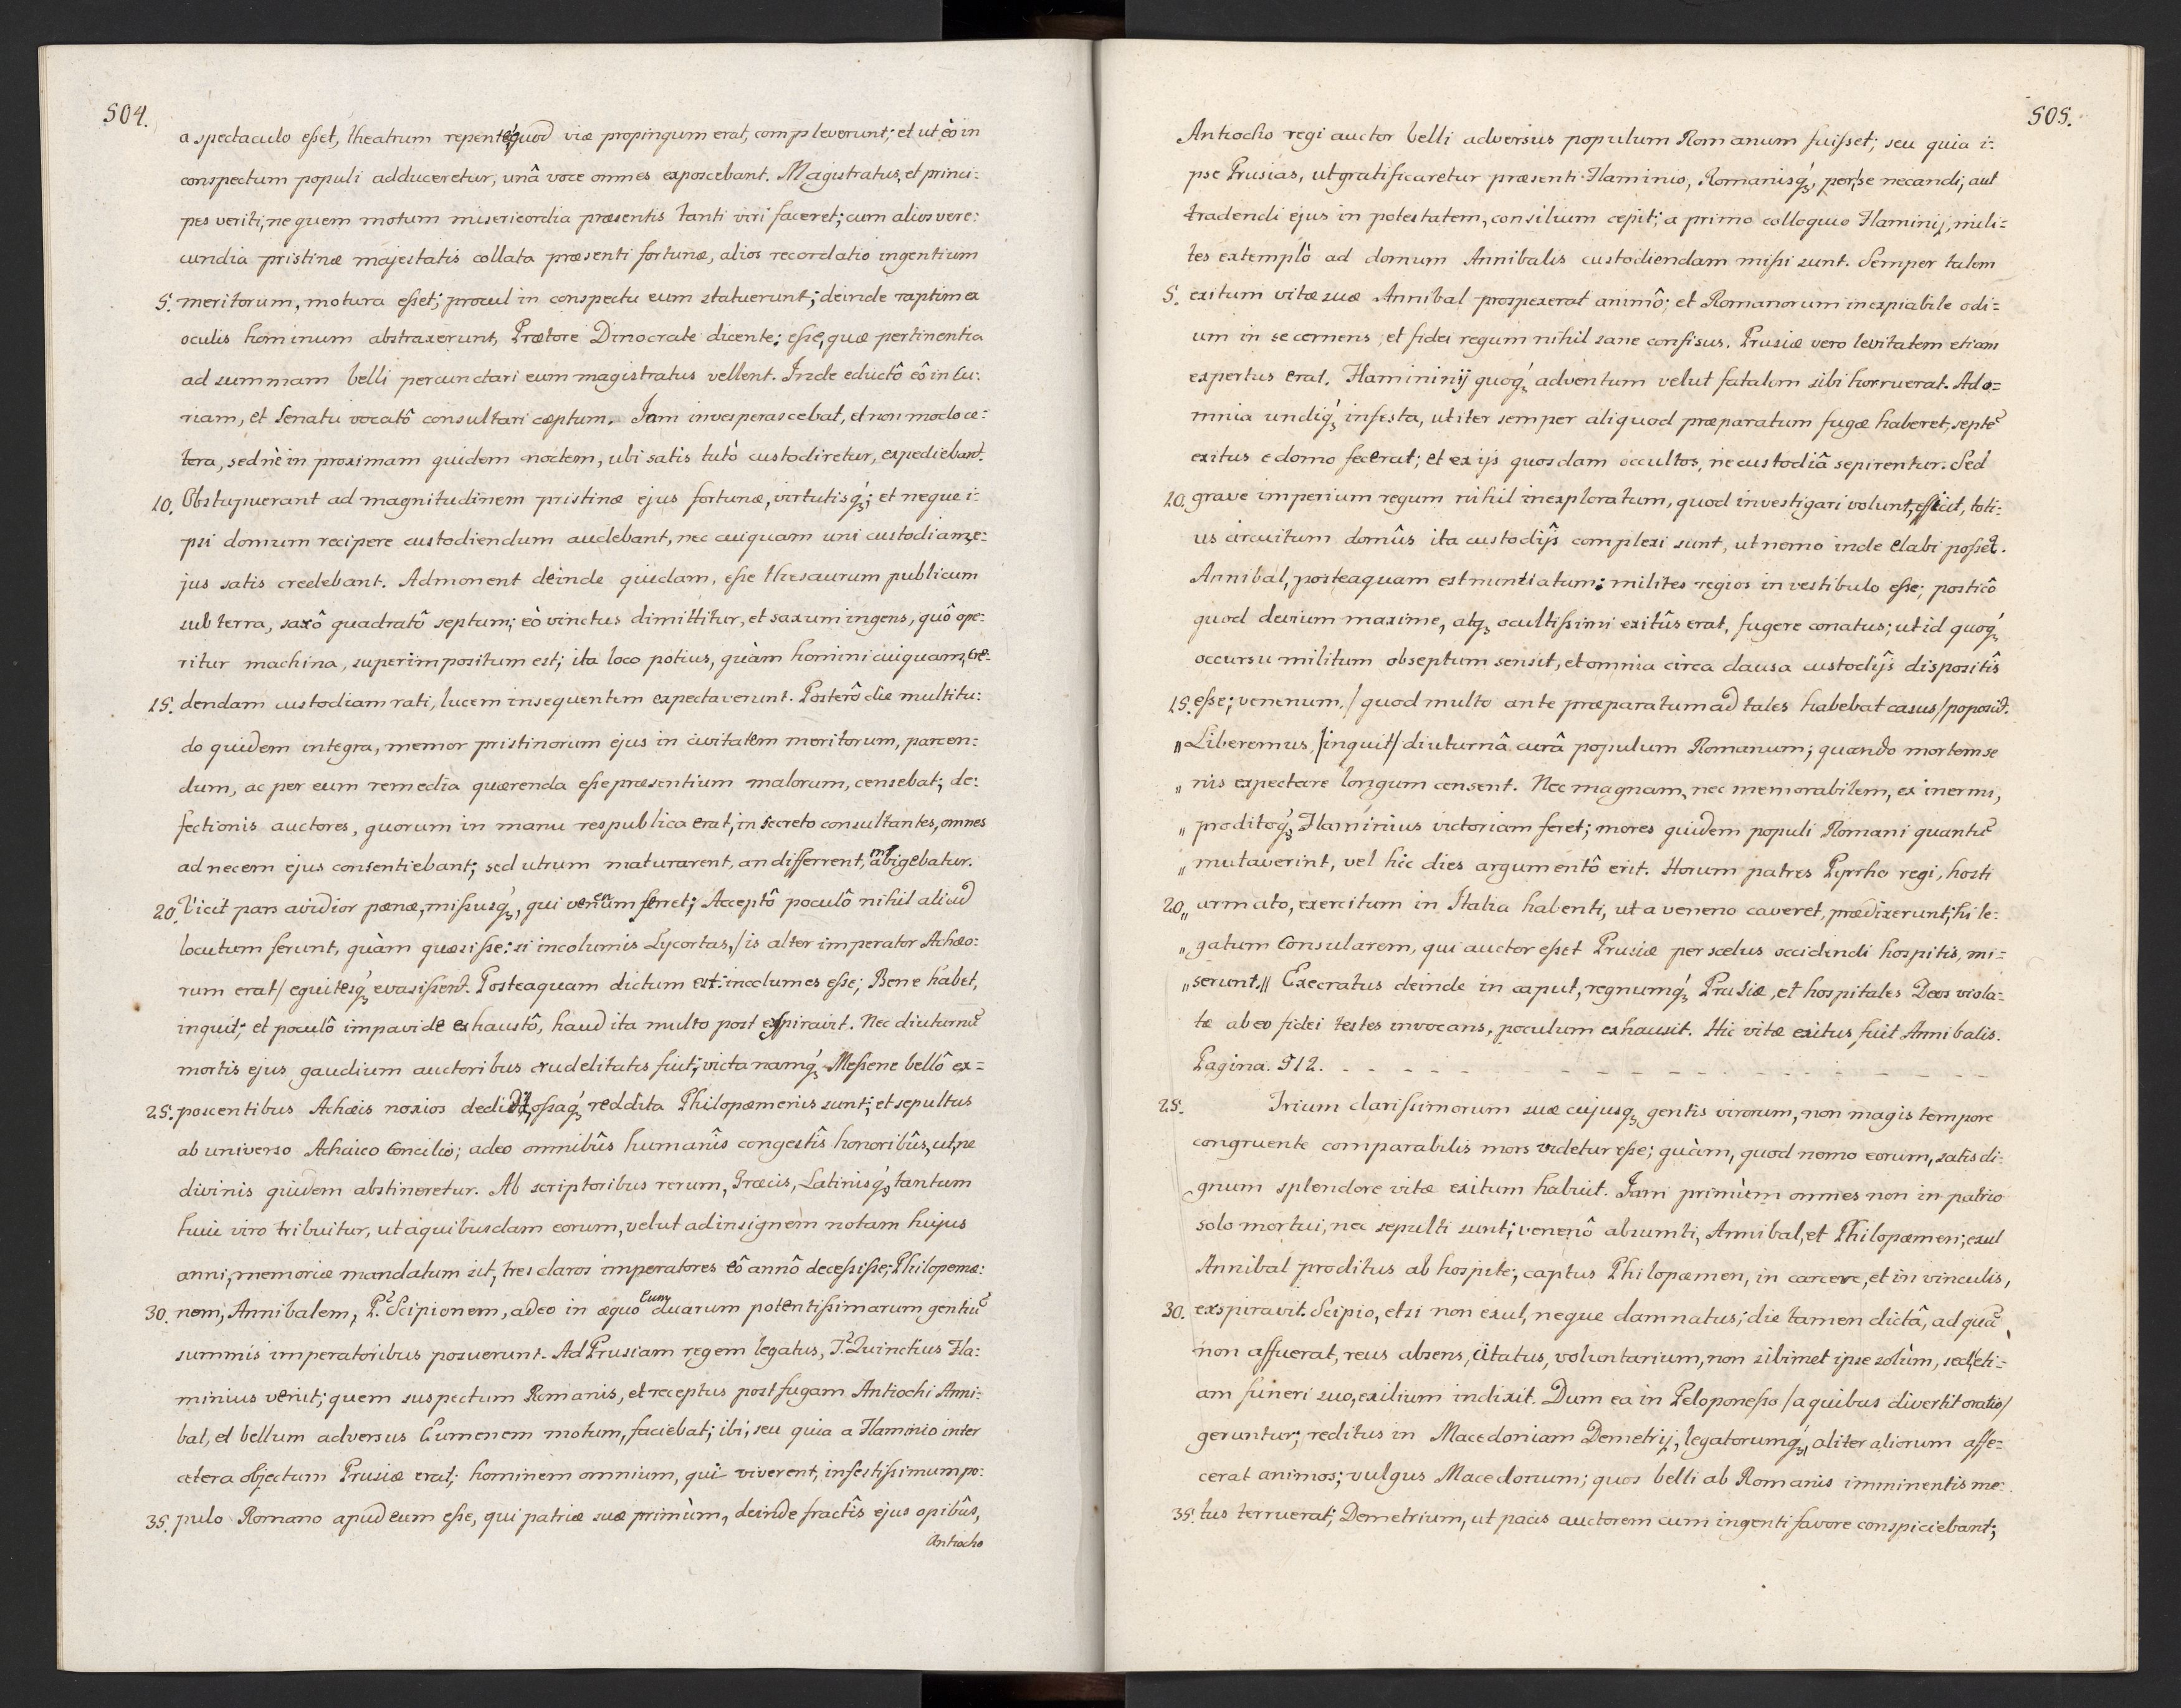 504.
a spectaculo eßet, theatrum repente, quod viæ propinqum erat, compleverunt; et ut eò in
conspectum populi adduceretur, unâ voce omnes exposcebant. Magistratus, et princi:
pes veriti, ne quem motum misericordia præsentis tanti viri faceret; cum alios vere:
cundia pristinæ majestatis collata præsenti fortunæ, alios recordatio ingentium
5. meritorum, motura eßet; procul in conspectu eum statuerunt; deinde raptim ex
oculis hominum abstraxerunt, Prætore Dinocrate dicente; eße, quæ pertinentia
ad summam belli percunctari eum magistratus vellent. Inde eductô eô in Cu:
riam, et Senatu vocatô consultari cæptum. Jam invesperascebat, et non modo cæ:
tera, sed nè in proximam quidem noctem, ubi satis tutò custodiretur, expediebant.
10. Obstupuerant ad magnitudinem pristinæ ejus fortunæ, virtutisq́3; et neque i:
psi domum recipere custodiendum audebant, nec cuiquam uni custodiam e:
jus satis credebant. Admonent deinde quidam, eße thesaurum publicum
sub terra, saxô quadratô septum; eò vinctus dimittitur, et saxum ingens, quô ope:
ritur machina, superimpositum est; ita loco potius, quàm homini cuiquam, cre:
15. dendam custodiam rati, lucem insequentem expectaverunt. Posterô die multitu:
do quidem integra, memor pristinorum ejus in civitatem meritorum, parcen:
dum, ac per eum remedia quærenda eße præsentium malorum, censebat; de:
fectionis auctores, quorum in manu respublica erat, in secreto consultantes, omnes
ad necem ejus consentiebant; sed utrum maturarent, an differrent, ambigebatur.
20. Vicit pars avidior pœnæ, mißusq́3, qui venenum ferret; Acceptô poculô nihil aliud
locutum ferunt, quàm quæsiße: si incolumis Lycortas, /is alter imperator Achæo:
rum erat/ equitesq́3 evasißent. Posteaquam dictum est: incolumes eße; Bene habet,
inquit; et poculô impavide exhaustô, haud ita multo post expiravit. Nec diuturnũ
mortis ejus gaudium auctoribus crudelitatis fuit; victa namq́3 Meßene bellô ex=
25. poscentibus Achæis noxios dedidit, oßaq́3 reddita Philopœmenis sunt; et sepultus
ab universo Achaico Concilio; adeo omnibûs humanîs congestîs honoribûs, ut, ne
divinis quidem abstineretur. Ab scriptoribus rerum, Græcis, Latinisq́3, tantum
huic viro tribuitur, ut a quibusdam eorum, velut ad insignem notam hujus
anni, memoriæ mandatum sit, tres claros imperatores eô annô deceßiße; Philopemæ:
30. nem, Annibalem, P. Scipionem, adeo in æquo Eum duarum potentißimarum gentiũ
summis imperatoribus posuerunt. Ad Prusiam regem legatus, T. Quinctius Fla:
minius venit; quem suspectum Romanis, et receptus post fugam Antiochi Anni:
bal, et bellum adversus Eumenem motum, faciebat; ibi, seu quia a Flaminio inter
cetera objectum Prusiæ erat; hominem omnium, qui viverent, infestißimum po:
35. pulo Romano apud eum eße, qui patriæ suæ primùm, deinde fractîs ejus opibûs,
Antiocho
505.
Antiocho regi auctor belli adversus populum Romanum fuißet; seu quia i:
pse Prusias, ut gratificaretur præsenti Flaminio, Romanisq́3, per se necandi, aut
tradendi ejus in potestatem, consilium cepit; a primo colloquo Flaminij, mili=
tes extemplò ad domum Annibalis custodiendam mißi sunt. Semper talem
5. exitum vitæ suæ Annibal prospexerat animô; et Romanorum inexpiabile odi=
um in se cernens, et fidei regum nihil sane confisus. Prusiæ vero levitatem etiam
expertus erat. Flamininij quoq́3 adventum velut fatalem sibi horruerat. Ad o=
mnia undiq́3 infesta, ut iter semper aliquod præparatum fugæ haberet, septẽ
exitus e domo fecerat; et ex ijs quosdam occultos, ne custodiâ sepirentur. Sed
10. grave imperium regum nihil inexploratum, quod investigari volunt, efficit, toti:
us circuitum domûs ita custodijs complexi sunt, ut nemo inde elabi poßet.
Annibal, posteaquam est nuntiatum: milites regios in vestibulo eße; posticô
quod devium maxime, atq3 ocultißimi exitûs erat, fugere conatus; ut id quoq́3
occursu militum obseptum sensit, et omnia circa clausa custodijs dispositîs
15. eße; venenum, /quod multo ante præparatum ad tales habebat casus/ poposcit.
"Liberemus, /inquit/ diuturnâ curâ populum Romanum; quando mortem se
" nis expectare longum censent. Nec magnam, nec memorabilem, ex inermi,
" proditoq́3, Flaminius victoriam feret; mores quidem populi Romani quantũ
" mutaverint, vel hic dies argumentô erit. Horum patres Pyrrho regi, hosti
20." armato, exercitum in Italia habenti, ut a veneno caveret, prædixerunt; hi le:
" gatum Consularem, qui auctor eßet Prusiæ per scelus occidendi hospitis, mi=
" serunt." Execratus deinde in caput, regnumq́3 Prusiæ, et hospitales Deos viola:
tæ ab eo fidei testes invocans, poculum exhausit. Hic vitæ exitus fuit Annibalis.
Pagina. 512. - - - - - - - - - - - - - - -
25. Trium clarißimorum suæ cujusq3 gentis virorum, non magis tempore
congruente comparabilis mors videtur eße; quàm, quod nemo eorum, satis di:
gnum splendore vitæ exitum habuit. Jam primùm omnes non in patrio
solo mortui, nec sepulti sunt; venenô absumti, Annibal, et Philopæmen; exul
Annibal proditus ab hospite; captus Philopæmen, in carcere, et in vinculis,
30. exspiravit. Scipio, etsi non exul, neque damnatus; die tamen dictâ, ad quã
non affuerat, reus absens, citatus, voluntarium, non sibimet ipse solùm, sed, eti=
am funeri suo, exilium indixit. Dum ea in Peloponeßo /a quibus divertit oratio/
geruntur; reditus in Macedoniam Demetrij, legatorumq́3, aliter aliorum affe=
cerat animos; vulgus Macedonum; quos belli ab Romanis imminentis me:
35. tus terruerat; Demetrium, ut pacis auctorem cum ingenti favore conspiciebant;